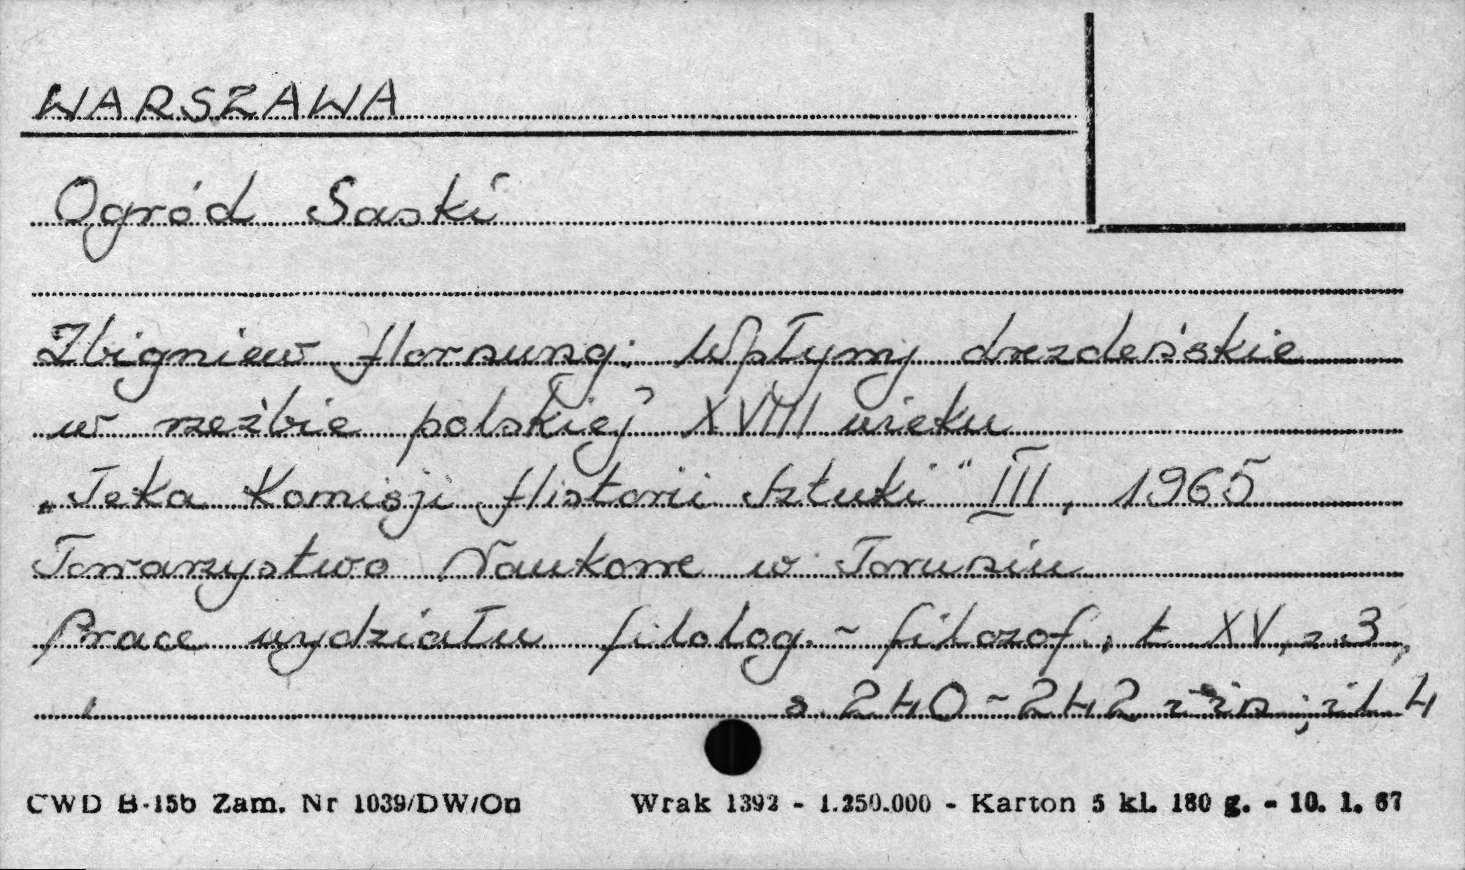 WARSZAWA
Ogród Saski
Zbigniew Hornung: Wpływy drezdeńskie
w rzeźbie polskiej XVIII wieku
„Teka Komisji Historii Sztuki" III, 1965
Towarzystwo Naukowe w Toruniu
Prace wydziału filolog. - filozof., t XV, z. 3,
s. 240-242 i in; il. 4
CWD B-15b Zam. Nr 1039/DW/On Wrak 1392 - 1.250.000 - Karton 5 kl. 180 g. - 10. 1. 67